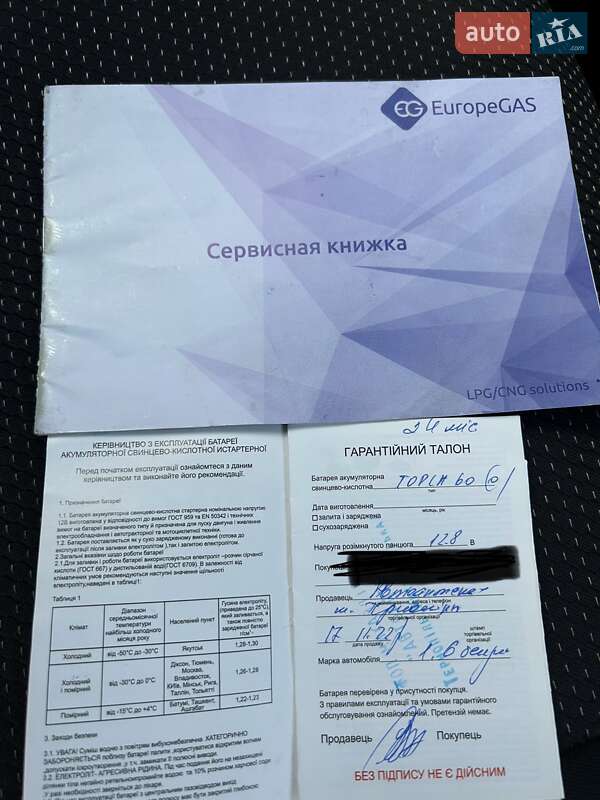 auto RIA .com
EG EuropeGAS
Сервисная книжка
LPG/CNG solutions
КЕРІВНИЦТВО З ЕКСПЛУАТАЦІЇ БАТАРЕЇ
АКУМУЛЯТОРНОЇ СВИНЦЕВО-КИСЛОТНОЇ ИСТАРТЕРНОЇ
Перед початком експлуатації ознайомтеся з даним
керівництвом та виконайте його рекомендації.
1. Призначення батареї
1.1. Батарея акумуляторна свинцево-кислотна стартерна номінальною напругою
12В виготовлена у відповідності до вимог ГОСТ 959 та EN 50342 і технічних
вимог на батареї визначеного типу й призначена для пуску двигуна і живлення
електрообладнання і автотракторної та мотоциклетної техніки.
1.2. Батарея поставляється як у сухо зарядженому виконанні (готова до
експлуатації після заливки електролітом ),так і залитою електролітом.
2.Загальні вказівки щодо роботи батареї
2.1.Для заливки і роботи батареї використовується електроліт -розчин сірчаної
кислоти (ГОСТ 667) у дистильованій воді(ГОСТ 6709). В залежності від
кліматичних умов рекомендуються наступні значення щільності
електроліту,наведені в таблиці1:
Таблиця 1
Клімат
Діапазон
середньомісячної
температури
найбільш холодного
місяця року
Населений пункт
Густина електроліту,
приведена до 25°С,
який заливається, а
також повністю
зарядженої батареї
г/см
Холодний
від -50°С до -30°С
Якутськ
1,28-1,30
Холодний
і помірний
від -30°С до 0°С
Діксон, Тюмень,
Москва,
Владивосток,
Київ, Мінськ, Рига,
Таллін, Тольятті
1,26-1,28
Помірний
від -15°С до +4°С
Батумі, Ташкент,
Ашгабат
1,22-1,23
3. Заходи безпеки
3.1. УВАГА! Суміш водню з повітрям вибухонебезпечна. КАТЕГОРИЧНО
ЗАБОРОНЯЄТЬСЯ поблизу батареї палити, користуватися відкритим вогнем
3.2. ЕЛЕКТРОЛІТ- АГРЕСИВНА РІДИНА.
24 міс
ГАРАНТІЙНИЙ ТАЛОН
Батарея акумуляторна
свинцево-кислотна TOPLA 60
тип
Дата виготовлення
місяць, рік
залита і заряджена
сухозаряджена
Напруга розімкнутого ланцюга 12.8 В
Продавець
адреса, адреса и телефон
торгівельної організації
17 11.22р
дата продажу
штамп
торгівельної
організації
Марка автомобіля 1,6
Батарея перевірена у присутності покупця.
З правилами експлуатації та умовами гарантійного
обслуговування ознайомлений. Претензій немає.
Продавець Покупець
БЕЗ ПІДПИСУ НЕ Є ДІЙСНИМ